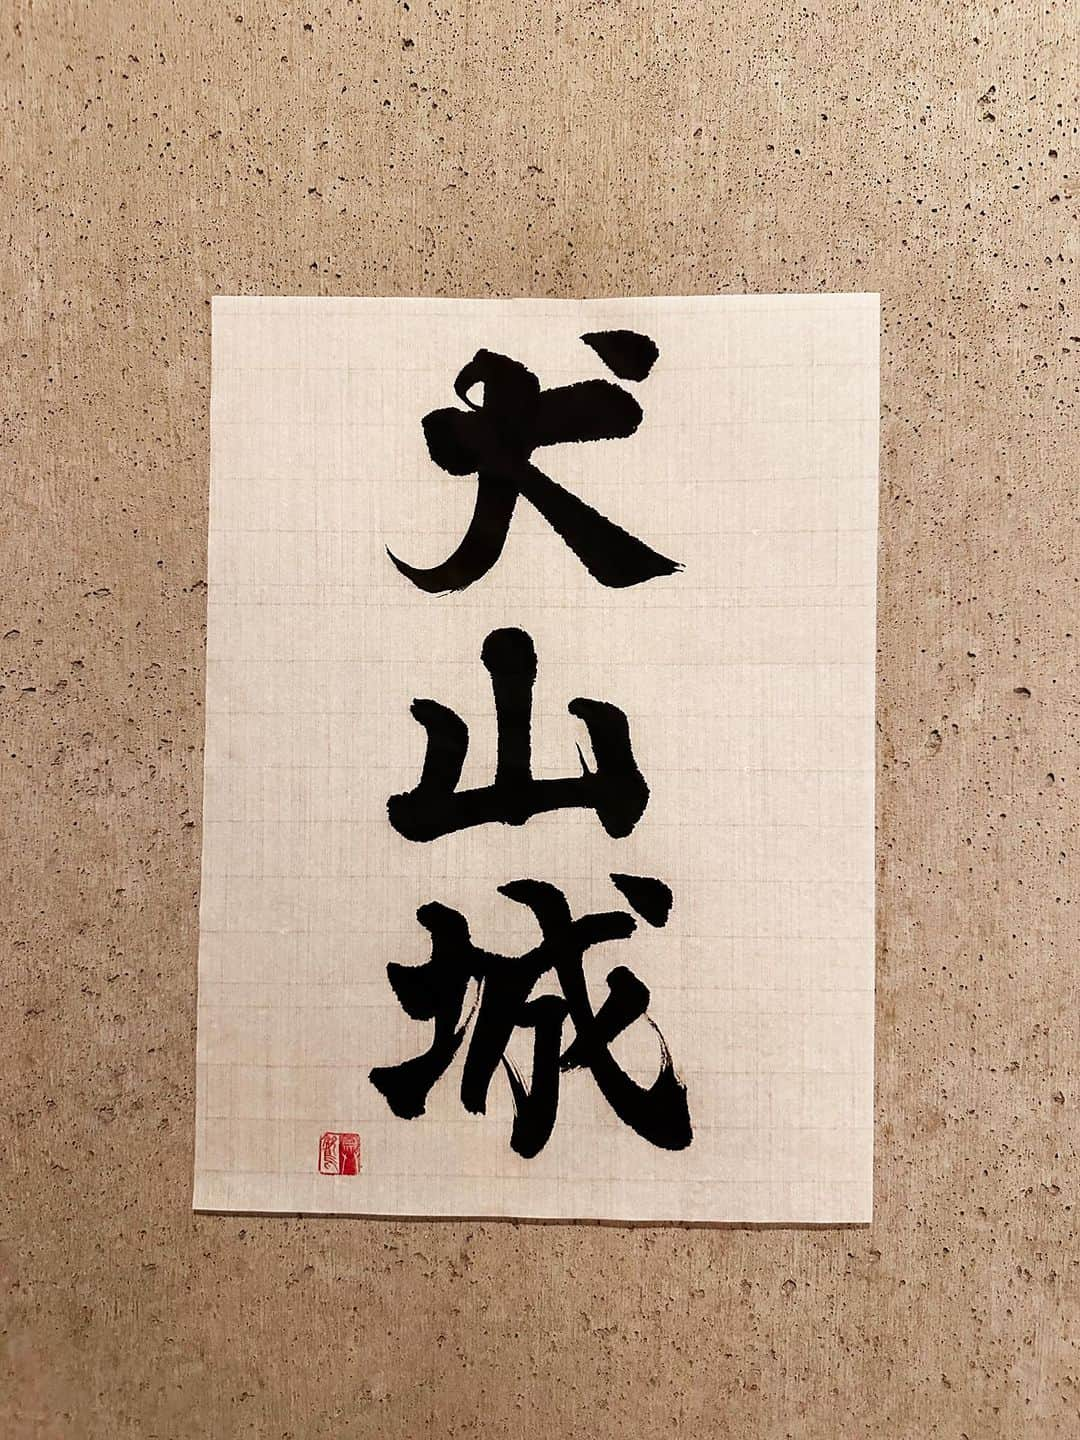 犬山城